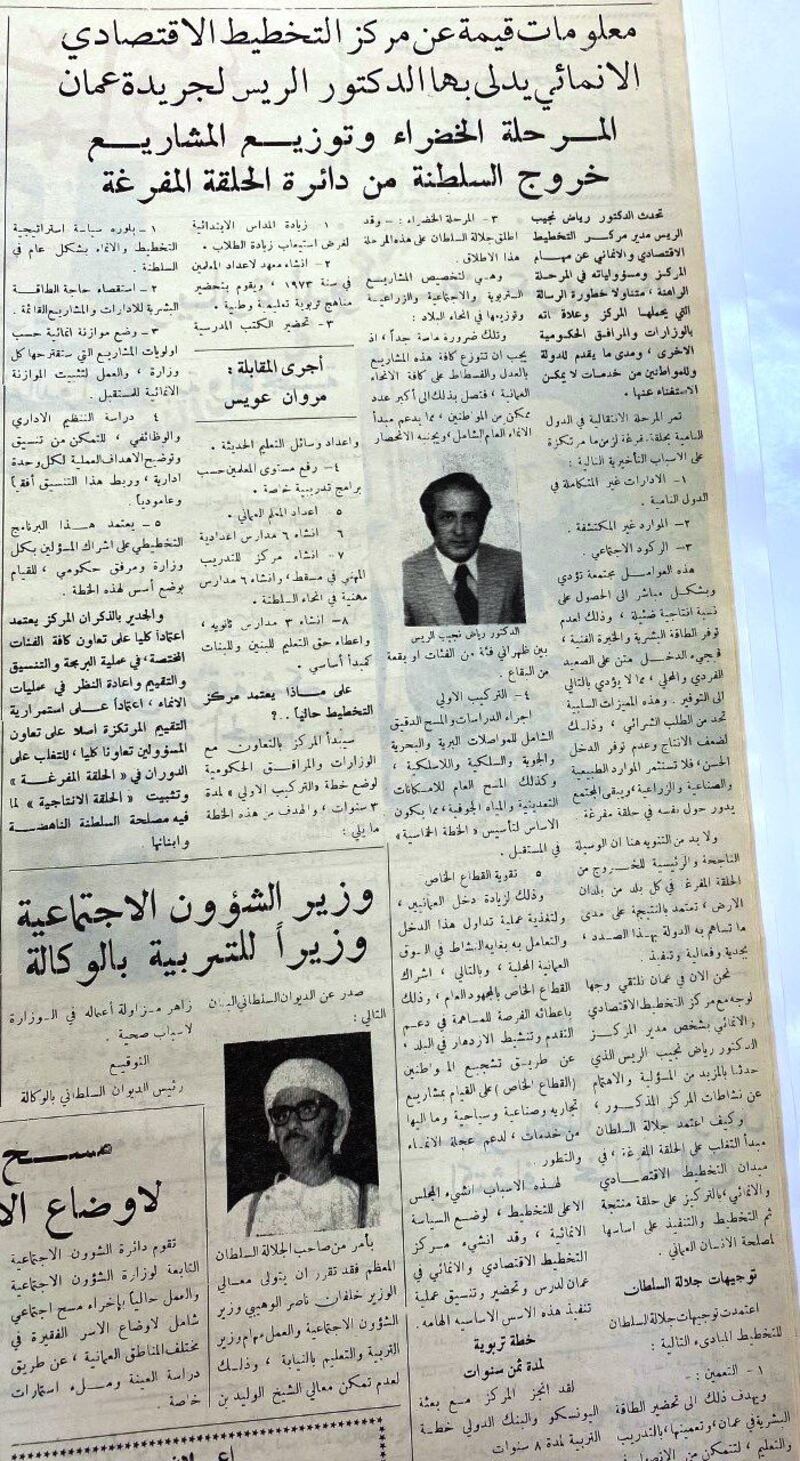 معلومات قيمة عن مركز التخطيط الاقتصادي
الانمائي يدلى بها الدكتور الريس لجريدة عمان
المرحلة الخضراء وتوزيع المشاريع
خروج السلطنة من دائرة الحلقة المفرغة
تحدث الدكتور رياض نجيب
الريس مدير مركز التخطيط
الاقتصادي والانمائي عن مهام
المركز ومسؤولياته في المرحلة
الراهنة ، متناولا خطورة الرسالة
التي يحملها المركز وعلاقاته
بالوزارات والمرافق الحكومية
الاخرى ، ومدى ما يقدم للدولة
وللمواطنين من خدمات لا يمكن
الاستغناء عنها .
تمر المرحلة الانتقالية في الدول
النامية بحلقة مفرغة لزمن ما مرتكزة
على الاسباب التأخيرية التالية :
١- الادارات غير المتكاملة في
الدول النامية .
٢- الموارد غير المكتشفة .
٣- الركود الاجتماعي .
هذه العوامل مجتمعة تؤدي
وبشكل مباشر الى الحصول على
نسبة انتاجية ضئيلة ، وذلك لعدم
توفر الطاقة البشرية والخبرة الفنية ،
فيجيء الدخل متن على الصعيد
الفردي والمحلي ، مما لا يؤدي بالتالي
الى التوفير . وهذه المميزات السلبية
تحد من الطلب الشرائي ، وذلك
لضعف الانتاج وعدم توفر الدخل
الحسن ، فلا تستثمر الموارد الطبيعية
والصناعية والزراعية ، ويبقى المجتمع
يدور حول نفسه في حلقة مفرغة .
ولا بد من التنويه هنا ان الوسيلة
الناجحة والرئيسية للخروج من
الحلقة المفرغة في كل بلد من بلدان
الارض ، تعتمد بالنتيجة على مدى
ما تساهم به الدولة بهذا الصدد ،
بجدية وفعالية وتنفيذ .
نحن الان في عمان نلتقي وجها
لوجه مع مركز التخطيط الاقتصادي
والانمائي بشخص مدير المركز
الدكتور رياض نجيب الريس الذي
حدثنا بالمزيد من المسؤلية والاهتمام
عن نشاطات المركز المذكور ،
وكيف اعتمد جلالة السلطان
مبدأ التغلب على الحلقة المفرغة ، في
ميدان التخطيط الاقتصادي
والانمائي ، بالتركيز على حلقة منتجة
ثم التخطيط والتنفيذ على اساسها
لمصلحة الانسان العماني .
توجيهات جلالة السلطان
اعتمدت توجيهات جلالة السلطان
للتخطيط المبادىء التالية :
١- التعمين : -
ويهدف ذلك الى تحضير الطاقة
البشرية في عمان ، وتعمينها ، بالتدريب
والتعليم ، لتتمكن من
٣- المرحلة الخضراء : - وقد
اطلق جلالة السلطان على هذه المرحلة
هذا الاطلاق .
وهي لتخصيص المشاريع
التربوية والاجتماعية والزراعية
وتوزيعها في انحاء البلاد :
وتلك ضرورة ماسة جداً ، اذ
يجب ان تتوزع كافة هذه المشاريع
بالعدل والقسطاط على كافة الانحاء
العمانية ، فتصل بذلك الى أكبر عدد
ممكن من المواطنين ، مما يدعم مبدأ
الانماء العام الشامل ، ويجنبه الانحصار
الدكتور رياض نجيب الريس
بين ظهراني فئة من الفئات او بقعة
من البقاع .
٤- التركيب الاولي
اجراء الدراسات والمسح الدقيق
الشامل للمواصلات البرية والبحرية
والجوية والسلكية واللاسلكية ،
وكذلك المسح العام للامكانات
التعدينية والمياه الجوفية ، مما يكون
الاساس لتأسيس « الخطة الخماسية »
في المستقبل .
٥ تقوية القطاع الخاص
وذلك لزيادة دخل العمانيين ،
ولتغذية عملية تداول هذا الدخل
والتعامل به بغاية النشاط في السوق
العمانية المحلية ، وبالتالي ، اشراك
القطاع الخاص بالمجهود العام ، وذلك
بإعطائه الفرصة للمساهمة في دعم
التقدم وتنشيط الازدهار في البلد ،
عن طريق تشجيع المواطنين
(القطاع الخاص) على القيام بمشاريع
تجارية وصناعية وسياحية وما اليها
من خدمات ، لدعم عجلة الانماء
والتطور .
لهذه الاسباب انشيء المجلس
الاعلى للتخطيط ، لوضع السياسة
الانمائية ، وقد انشيء مركز
التخطيط الاقتصادي والانمائي في
عمان لدرس وتحضير وتنسيق عملية
تنفيذ هذه الاسس الاساسيه الهامه .
خطة تربوية
لمدة ثمن سنوات
لقد انجز المركز مع بعثة
اليونسكو والبنك الدولي خطة
التربية لمدة ٨ سنوات
١ زيادة المداس الابتدائية
لغرض استيعاب زيادة الطلاب .
٢- انشاء معهد لاعداد المعلمين
في سنة ١٩٧٣ ، ويقوم بتحضير
مناهج تربوية تعليمية وطنية .
٣- تحضير الكتب المدرسية
أجرى المقابلة :
مروان عويس
واعداد وسائل التعليم الحديثة .
٤- رفع مستوى المعلمين حسب
برامج تدريبية خاصة .
٥ اعداد المعلم العماني .
٦ انشاء ٦ مدارس اعدادية
٧- انشاء مركز للتدريب
المهني في مسقط ، وانشاء ٦ مدارس
مهنية في انحاء السلطنة .
٨- انشاء ٣ مدارس ثانويه ،
واعطاء حق التعليم للبنين وللبنات
كمبدأ أساسي .
على ماذا يعتمد مركز
التخطيط حالياً . . ؟
سيبدأ المركز بالتعاون مع
الوزارات والمرافق الحكومية
لوضع خطة « التركيب الاولي » لمدة
٣ سنوات ، والهدف من هذه الخطة
ما يلي :
١- بلوره سياسة استراتيجية
التخطيط والانماء بشكل عام في
السلطنة .
٢- استقصاء حاجة الطاقة
البشرية للادارات والمشاريع القائمة .
٣- وضع موازنة انمائية حسب
اولويات المشاريع التي ستقترحها كل
وزارة ، والعمل لتثبيت الموازنة
الانمائية للمستقبل .
٤ دراسة التنظيم الاداري
والوظائفي ، للتمكن من تنسيق
وتوضيح الاهداف العملية لكل وحدة
ادارية ، وربط هذا التنسيق أفقياً
وعامودياً .
٥- يعتمد هذا البرنامج
التخطيطي على اشراك المسؤلين بكل
وزارة ومرفق حكومي ، للقيام
بوضع أسس لهذه الخطة .
والجدير بالذكر ان المركز يعتمد
اعتماداً كليا على تعاون كافة الفئات
المختصة ، في عملية البرمجة والتنسيق
والتقييم واعادة النظر في عمليات
الانماء ، اعتماداً على استمرارية
التقييم المرتكزة أصلا على تعاون
المسؤولين تعاونا كليا ، للتغلب على
الدوران في « الحلقة المفرغة »
وتثبيت « الحلقة الانتاجية » لما
فيه مصلحة السلطنة الناهضة
وابنائها .
وزير الشؤون الاجتماعية
وزيراً للتربية بالوكالة
صدر عن الديوان السلطاني البيان
التالي :
بأمر من صاحب الجلالة السلطان
المعظم فقد تقرر ان يتولى معالي
الوزير خلفان ناصر الوهيبي وزير
الشؤون الاجتماعية والعمل مهام وزير
التربية والتعليم بالنيابة ، وذلك
لعدم تمكن معالي الشيخ الوليد بن
زاهر مزاولة أعماله في الوزارة
لاسباب صحية .
التوقيع
رئيس الديوان السلطاني بالوكالة
مسح
لاوضاع الا
تقوم دائرة الشؤون الاجتماعية
التابعة لوزارة الشؤون الاجتماعية
والعمل حالياً بإجراء مسح اجتماعي
شامل لاوضاع الاسر الفقيرة في
مختلف المناطق العمانية ، عن طريق
دراسة العينة وملء استمارات
خاصة .